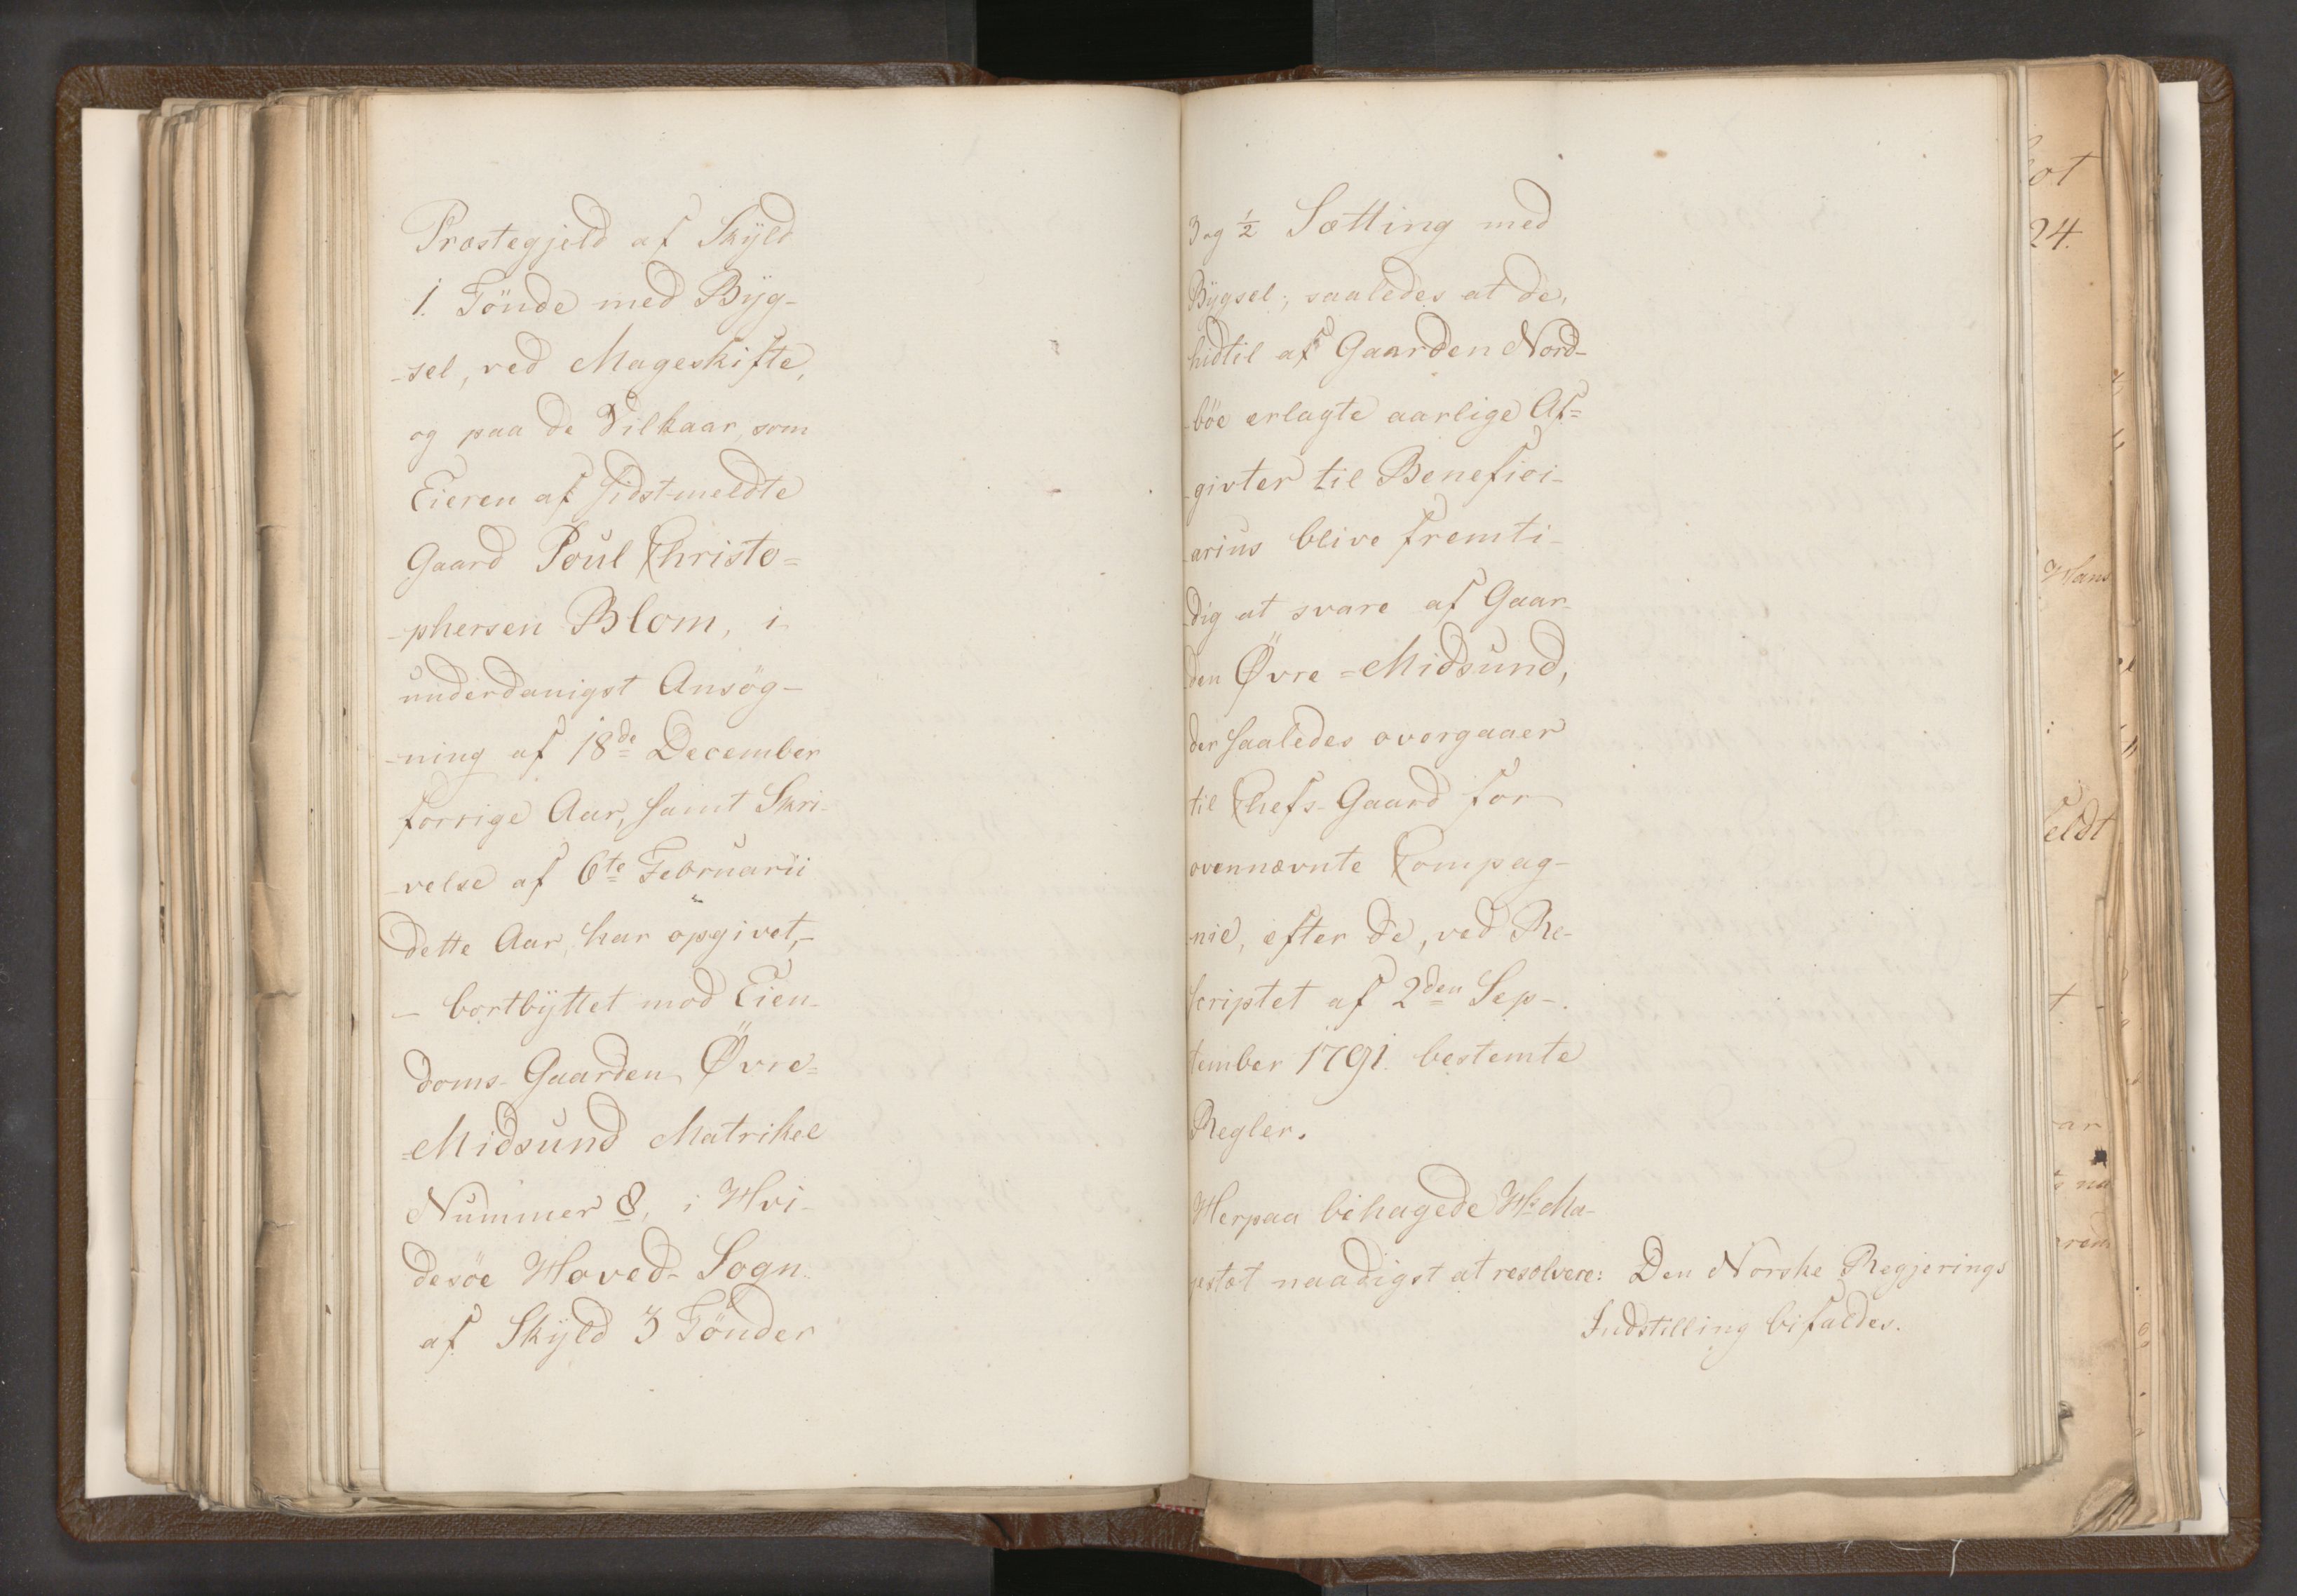 Præstegjeld af Skÿld
1. Tönde med Bÿg-
-sel, ved Mageskifte,
og paa de Vilkaar, som
Eieren af sidst-meldte
Gaard Poul Christo=
-phersen Blom, i
underdanigst Ansög-
-ning af 18de December
forrige Aar, samt Skri-
-velse af 6te Februarii
dette Aar, har opgivet,-
- bortbÿttet mod Eien-
doms-Gaarden Övre=
=Midsund Matrikel
Nummer 8, i Hvi-
desöe Hoved-Sogn.
af Skÿld 3 Tönder
3 og ½ Sætting med
Bÿgsel; saaledes at de,
hidtil af Gaarden Nord-
-böe erlagte aarlige Af=
-givter til Benefici-
arius blive fremti-
-dig at svare af Gaar-
-den Övre=Midsund,
der saaledes overgaaer
til Chefs-Gaard for
ovennævnte Compag-
-nie, efter de, ved Re-
scriptet af 2den Sep-
tember 1791. bestemte
Regler.
Herpaa behagede Hs: Ma-
jestæt naadigst at resolvere: Den Norske Regjerings
Indstilling bifaldes.
24.
Hans